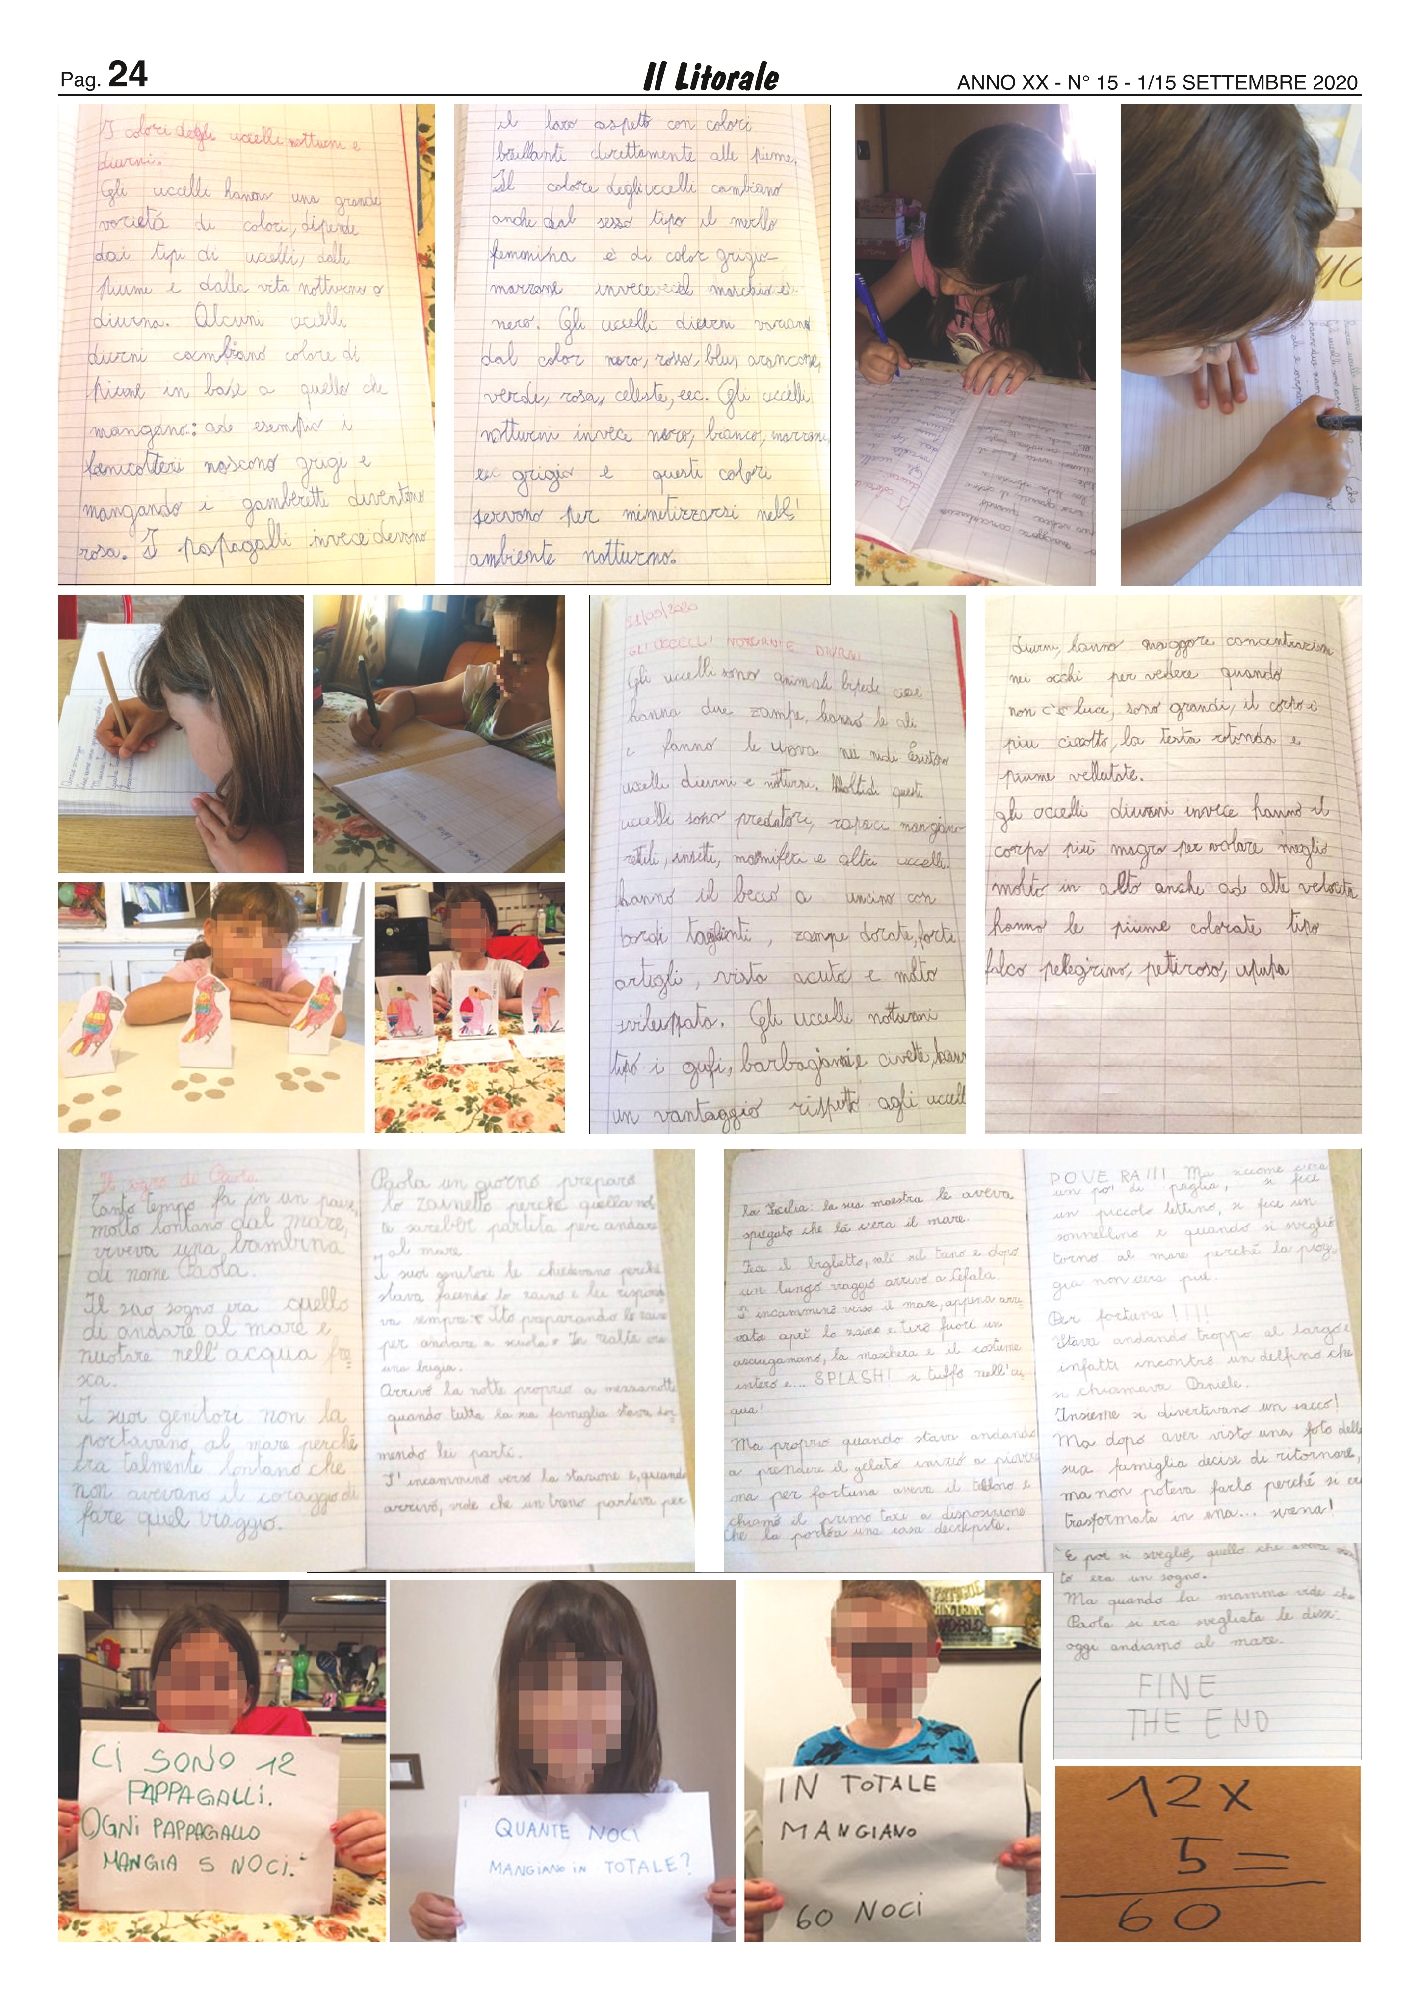 Pag. 24
Il Litorale
ANNO XX - N° 15 - 1/15 SETTEMBRE 2020
I colori degli uccelli notturni e
diurni.
Gli uccelli hanno una grande
varietà di colori, dipende
dai tipi di uccelli, dalle
piume e dalla vita notturna o
diurna. Alcuni uccelli
diurni cambiano colore di
piume in base a quello che
mangano: ad esempio i
fenicotteri nascono grigi e
mangando i gamberetti diventano
rosa. I papagalli invece devono
il loro aspetto con colori
brillanti direttamente alle piume.
Il colore degli uccelli cambiano
anche dal sesso tipo il merllo
femminina è di color grigio
marrone invece il maschio è
nero. Gli uccelli diurni variano
dal color nero, rosso, blu, arancone,
verde, rosa, celeste, ecc. Gli uccelli
notturni invece nero, bianco, marrone,
grigio e questi colori
servono per mimetizzarsi nell'
ambiente notturno.
GLI UCCELLI NOTTURNI E DIURNI
Gli uccelli sono animali bipede cioè
hanno due zampe, hanno le ali
e fanno le uova nei nidi. Esistono
uccelli diurni e notturni. Molti di questi
uccelli sono predatori, rapaci mangiano
rettili, insetti, mammiferi e altri uccelli
hanno il becco a uncino con
bordi taglienti, zampe dorate, forte
artigli, vista acuta e molto
sviluppata. Gli uccelli notturni
tipo i gufi, barbagianni e civette, hanno
un vantaggio rispetto agli uccelli
diurni, hanno maggore concentrazion
nei occhi per vedere quando
non c'è luce, sono grandi, il corpo è
piu ciccotto, la testa rotonda e
piume vellutate.
gli uccelli diurni invece hanno il
corpo più magro per volare meglio
molto in alto anche ad alte velocità
hanno le piume colorate tipo
falco pellegrino, petiroso, upupa
Il sogno di Paola
Tanto tempo fa in un paese
molto lontano dal mare,
viveva una bambina
di nome Paola.
Il suo sogno era quello
di andare al mare e
nuotare nell'acqua fre=
sca.
I suoi genitori non la
portavano al mare perché
era talmente lontano che
non avevano il coraggio di
fare quel viaggio.
Paola un giorno preparò
lo zainetto perché quella not
te sarebbe partita per andare
al mare
I suoi genitori le chiedevano perché
stava facendo lo zaino e lei rispond
va sempre: « Sto preparando lo zaino
per andare a scuola» In realtà era
una bugia.
Arrivò la notte proprio a mezzanotte
quando tutta la sua famiglia stava dor
mendo lei partì.
S'incamminò verso la stazione e, quando
arrivò, vide che un treno partiva per
la Sicilia: la sua maestra le aveva
spiegato che là c'era il mare.
Fece il biglietto, salì sul treno e dopo
un lungo viaggio arrivò a Cefalù.
S'incamminò verso il mare, appena arri
vata aprì lo zaino e tirò fuori un
asciugamano, la maschera e il costume
intero e... SPLASH! si tuffò nell'ac
qua!
Ma proprio quando stava andando
a prendere il gelato iniziò a piovere
ma per fortuna aveva il telefono e
chiamò il primo taxi a disposizione
che la portò a una casa decrepita.
POVERA!!! Ma siccome c'era
un po' di paglia, si fece
un piccolo lettino, si fece un
sonnellino e quando si svegliò
tornò al mare perché la piog
gia non c'era più.
Per fortuna!!!!
Stava andando troppo al largo e
infatti incontrò un delfino che
si chiamava Daniele.
Insieme si divertivano un sacco!
Ma dopo aver visto una foto della
sua famiglia decise di ritornare,
ma non poteva farlo perché si era
trasformata in una... sirena!
E poi si svegliò, quello che aveva
to era un sogno.
Ma quando la mamma vide che
Paola si era svegliata le disse:
oggi andiamo al mare.
FINE
THE END
CI SONO 12
PAPPAGALLI.
OGNI PAPPAGALLO
MANGIA 5 NOCI.
QUANTE NOCI
MANGIANO IN TOTALE?
IN TOTALE
MANGIANO
60 NOCI
12 x
5 =
60